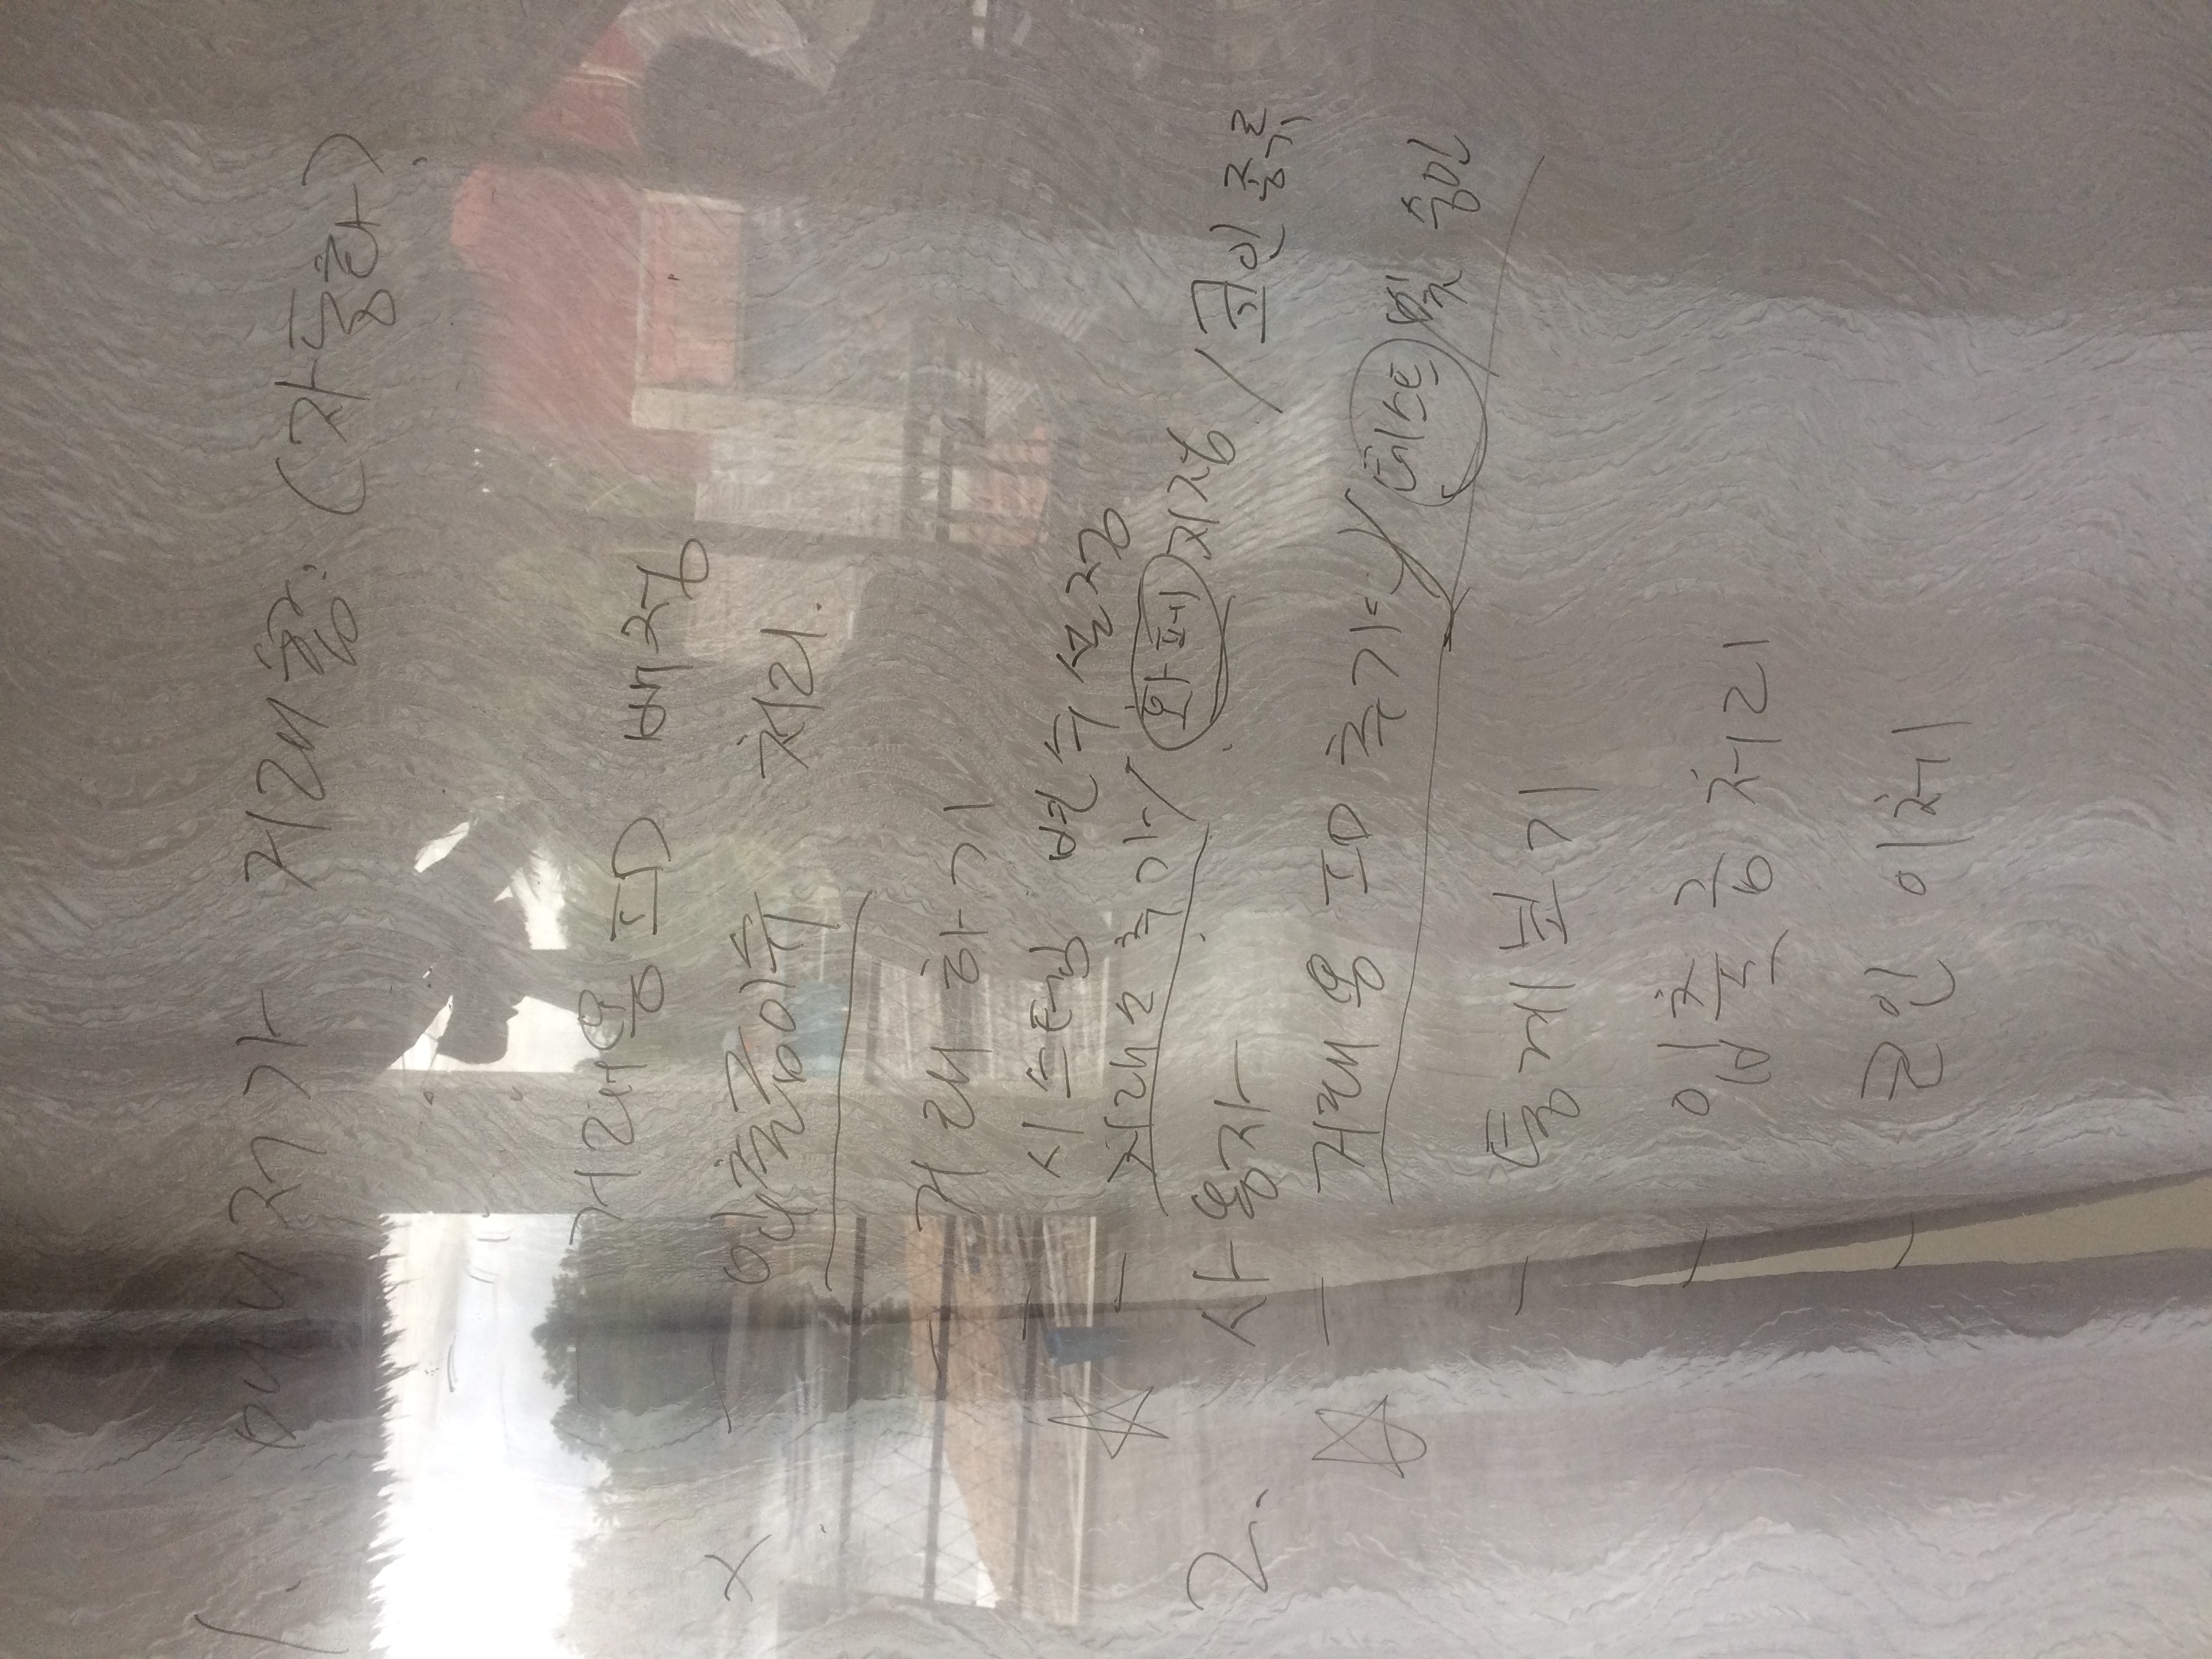 1. 매니저가 거래함. (자동화)
- 거래용 ID 배정
x - 입출금이슈 처리.
- 거래하기
- 시스템 변수설정
☆ - 거래소추가/ 화폐지정 / 코인종류
2. 사용자
☆ - 거래용 ID 추가/ 테스트/및 승인
- 통계보기
- 입출금처리
- 코인 이체